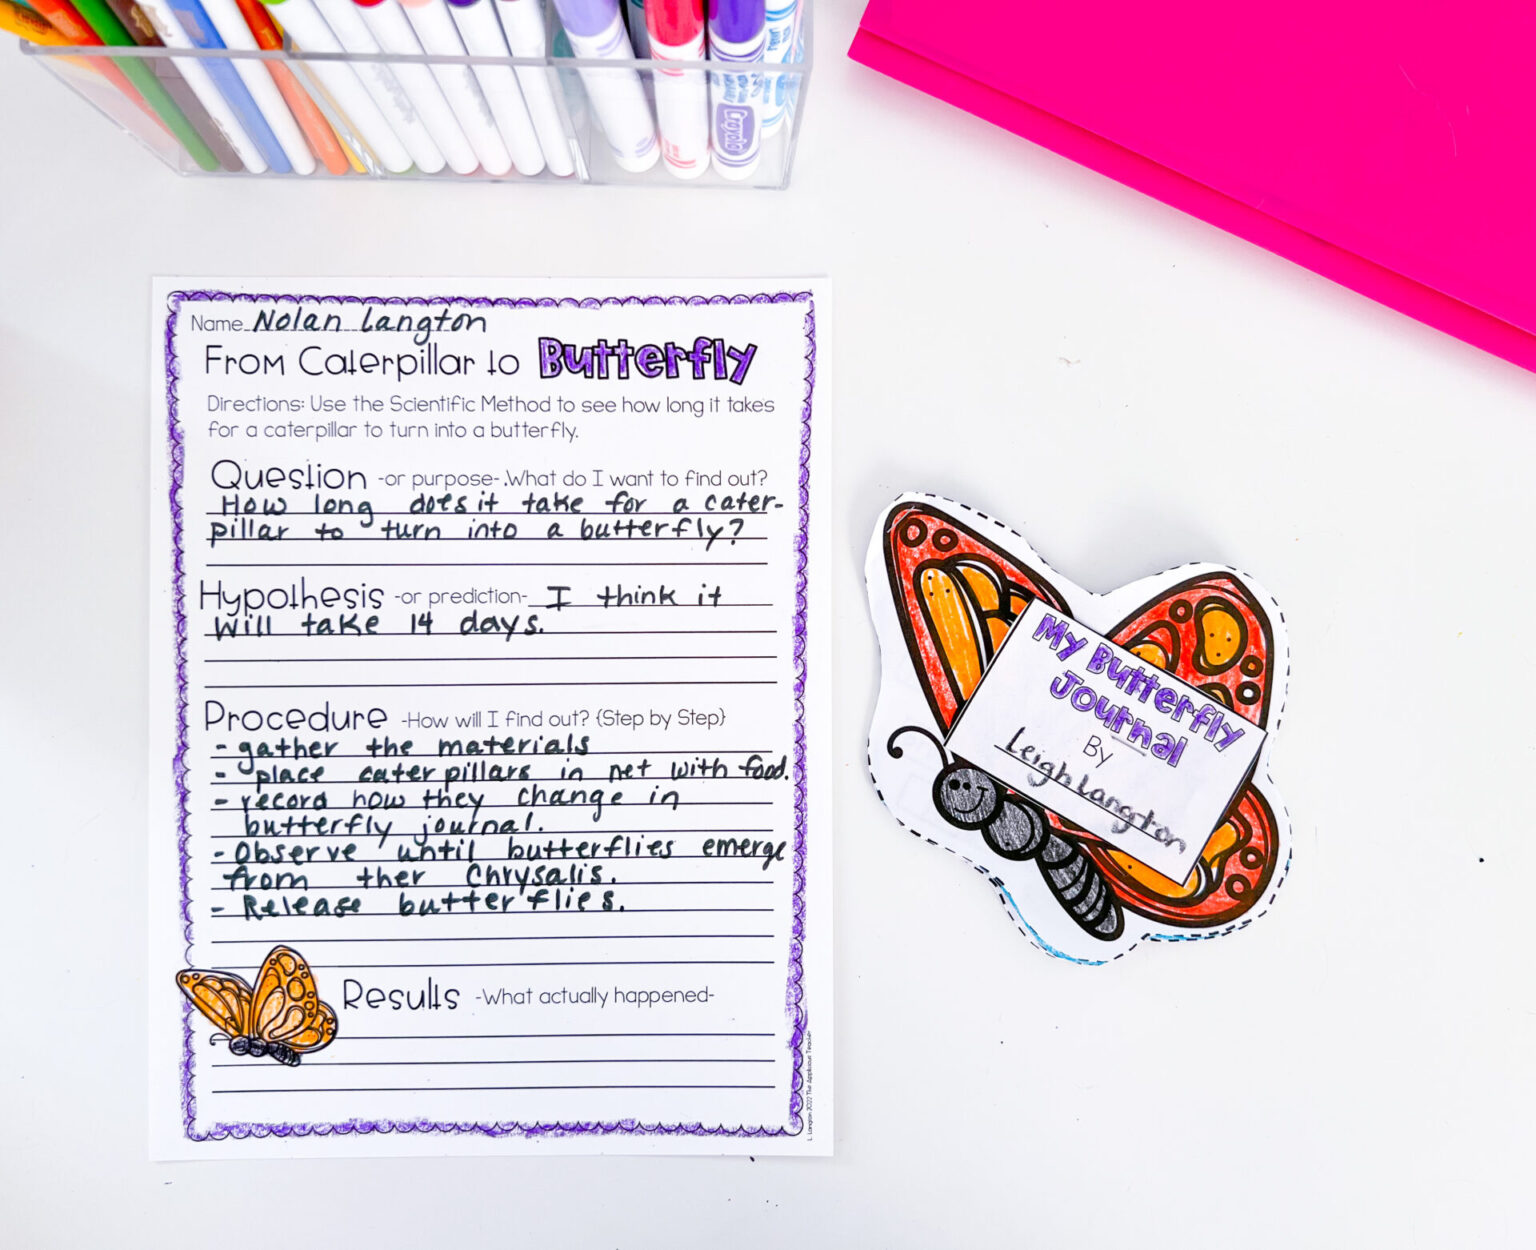 Crayola
Name Nolan Langton
From Caterpillar to Butterfly
Directions: Use the Scientific Method to see how long it takes
for a caterpillar to turn into a butterfly.
Question -or purpose- .What do I want to find out?
How long does it take for a cater-
pillar to turn into a butterfly?
Hypothesis -or prediction- I think it
will take 14 days.
Procedure -How will I find out? {Step by Step}
- gather the materials
- place caterpillars in net with food.
- record how they change in
butterfly journal.
- Observe until butterflies emerge
from ther Chrysalis.
- Release butterflies.
Results -What actually happened-
L. Langton 2022 The Applicious Teacher
My Butterfly
Journal
By
Leigh Langton